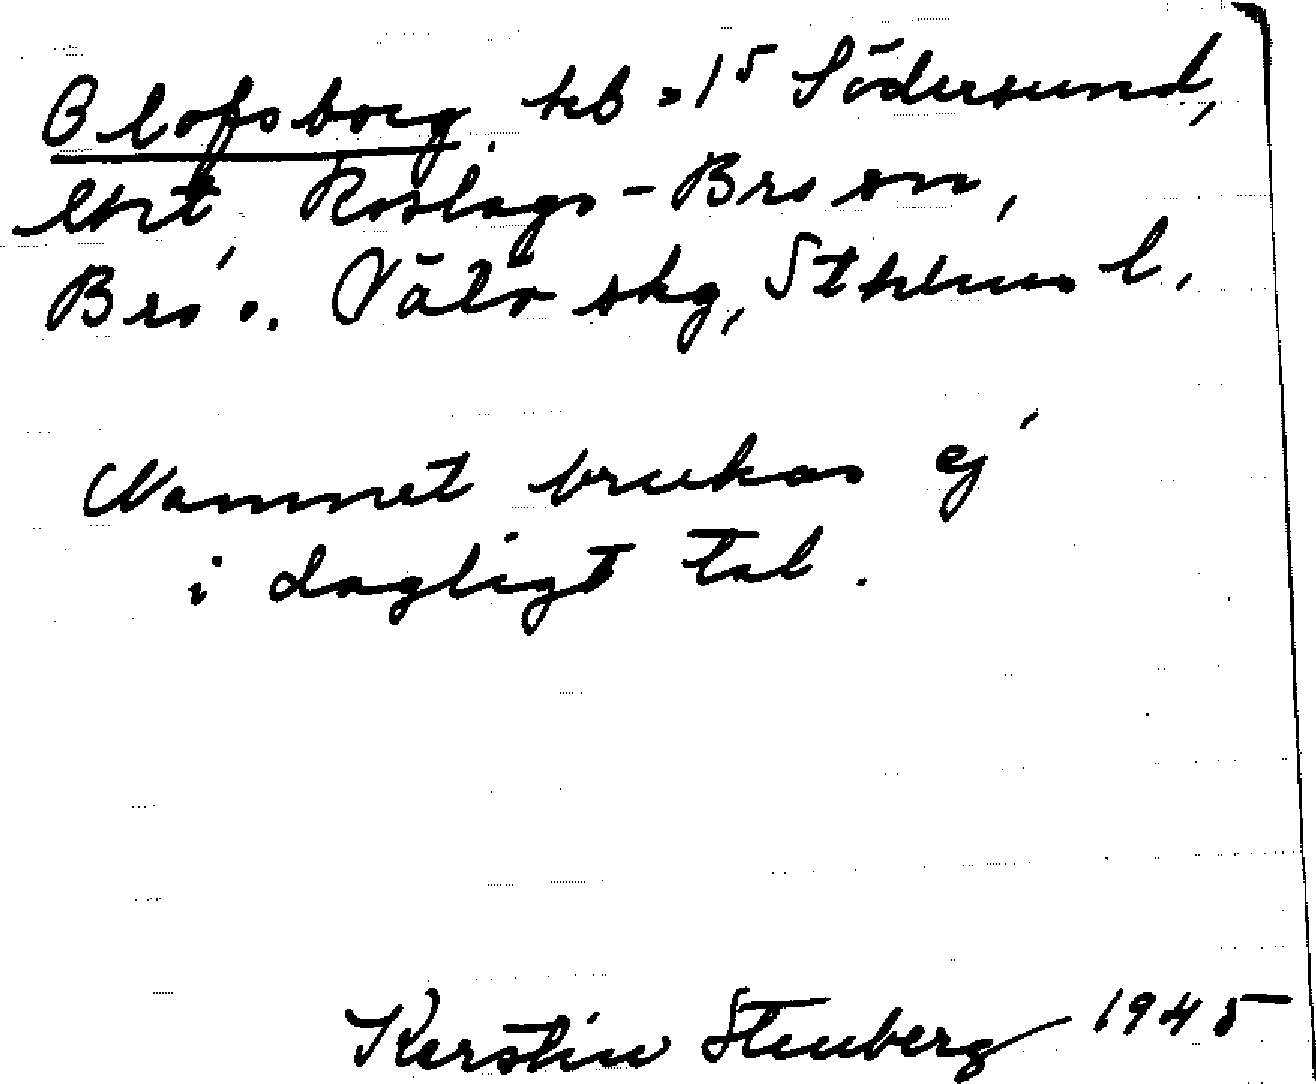 Olofsborg. hb • 1⁵ Södersund,
Roslags-Bro sn,
Bro o. Vätö skg, Sthlms l.
Namnet brukas ej
i dagligt tal.
Kerstin Stenberg 1945